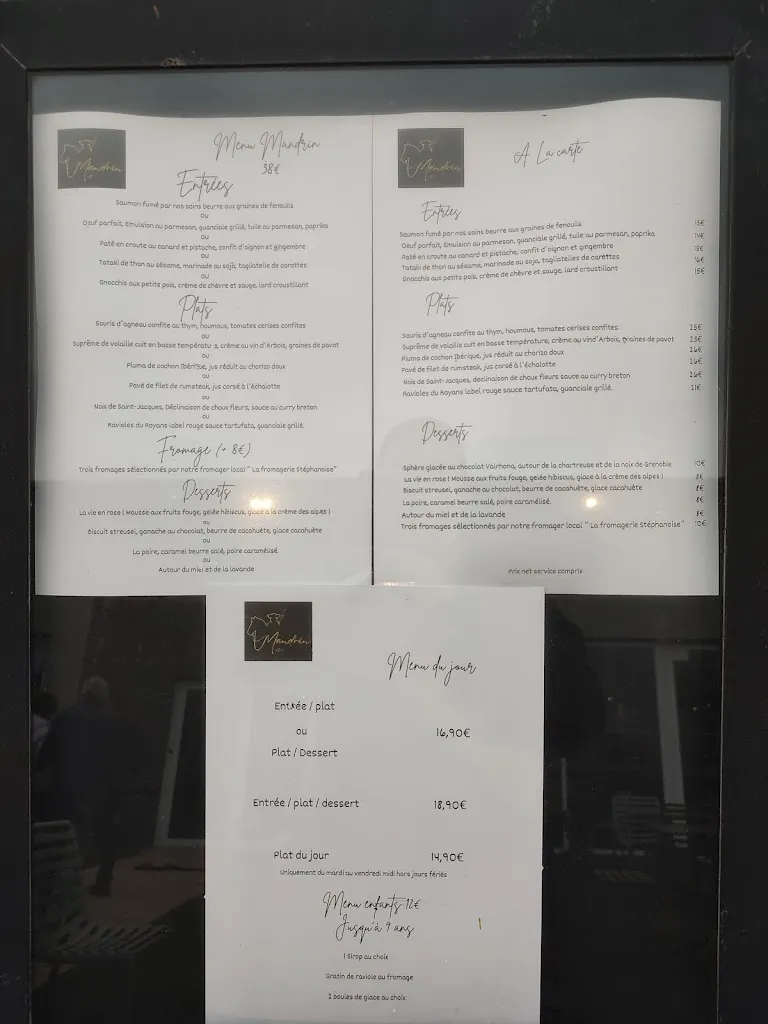 Mandrin
Menu Mandrin
38€
Entrées
Saumon fumé par nos soins beurre aux graines de fenouils
ou
Oeuf parfait, Emulsion au parmesan, guanciale grillé, tuile au parmesan, paprika
ou
Paté en croute au canard et pistache, confit d'oignon et gingembre
ou
Tataki de thon au sésame, marinade au soja, tagliatelle de carottes
ou
Gnocchis aux petits pois, crème de chèvre et sauge, lard croustillant
Plats
Souris d'agneau confite au thym, houmous, tomates cerises confites
ou
Suprême de volaille cuit en basse température, crème au vin d'Arbois, graines de pavot
ou
Pluma de cochon Ibérique, jus réduit au chorizo doux
ou
Pavé de filet de rumsteak, jus corsé à l'échalotte
ou
Noix de Saint-Jacques, Déclinaison de choux fleurs, sauce au curry breton
ou
Ravioles du Royans label rouge sauce tartufata, guanciale grillé
Fromage (+ 8€)
Trois fromages sélectionnés par notre fromager local " La fromagerie Stéphanoise"
Desserts
La vie en rose ( Mousse aux fruits fouge, gelée hibiscus, glace à la crème des alpes )
ou
Biscuit streusel, ganache au chocolat, beurre de cacahuète, glace cacahuète
ou
La poire, caramel beurre salé, poire caramélisé
ou
Autour du miel et de la lavande
Mandrin
A La carte
Entrées
Saumon fumé par nos soins beurre aux graines de fenouils 15€
Oeuf parfait, Emulsion au parmesan, guanciale grillé, tuile au parmesan, paprika 14€
Paté en croute au canard et pistache, confit d'oignon et gingembre 15€
Tataki de thon au sésame, marinade au soja, tagliatelles de carottes 16€
Gnocchis aux petits pois, crème de chèvre et sauge, lard croustillant 15€
Plats
Souris d'agneau confite au thym, houmous, tomates cerises confites 25€
Suprême de volaille cuit en basse température, crème au vind'Arbois, graines de pavot 23€
Pluma de cochon Ibérique, jus réduit au chorizo doux 26€
Pavé de filet de rumsteak, jus corsé à l'échalotte 26€
Noix de Saint-Jacques, declinaison de choux fleurs sauce au curry breton 26€
Ravioles du Royans label rouge sauce tartufata, guanciale grillé 21€
Desserts
Sphère glacée au chocolat Valrhona, autour de la chartreuse et de la noix de Grenoble 10€
La vie en rose ( Mousse aux fruits fouge, gelée hibiscus, glace à la crème des alpes ) 8€
Biscuit streusel, ganache au chocolat, beurre de cacahuète, glace cacahuète 8€
La poire, caramel beurre salé, poire caramélisé. 8€
Autour du miel et de la lavande 8€
Trois fromages sélectionnés par notre fromager local " La fromagerie Stéphanoise" 10€
Prix net service compris
Mandrin
Menu du jour
Entrée / plat
ou 16,90€
Plat / Dessert
Entrée / plat / dessert 18,90€
Plat du jour 14,90€
Uniquement du mardi au vendredi midi hors jours fériés
Menu enfants 12€
Jusqu'à 9 ans
1 Sirop au choix
Gratin de raviole au fromage
2 boules de glace au choix